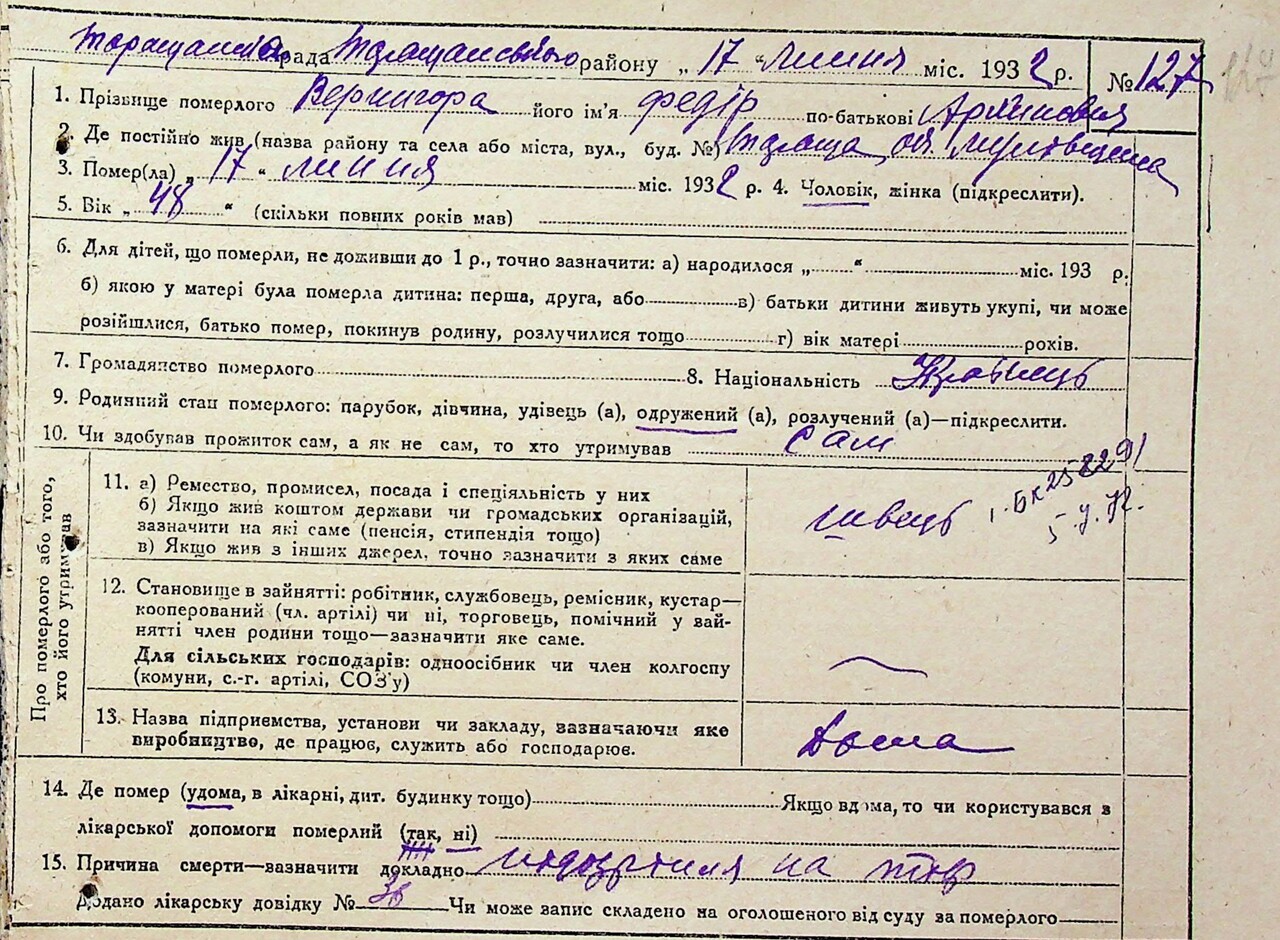 Таращанська рада Таращанського району „ 17 “ липня міс. 1932 р. № 127
1. Прізвище померлого Вернигора його ім'я Федір по-батькові Архипович
2. Де постійно жив (назва району та села або міста, вул., буд. №) Тараща
3. Помер(ла) „ 17 “ липня міс. 1932 р. 4. Чоловік, жінка (підкреслити).
5. Вік „ 48 “ (скільки повних років мав)
6. Для дітей, що померли, не доживши до 1 р., точно зазначити: а) народилося „ “ міс. 193 р.
б) якою у матері була померла дитина: перша, друга, або в) батьки дитини живуть укупі, чи може
розійшлися, батько помер, покинув родину, розлучилися тощо г) вік матері років.
7. Громадянство померлого 8. Національність Українець
9. Родинний стан померлого: парубок, дівчина, удівець (а), одружений (а), розлучений (а)—підкреслити.
10. Чи здобував прожиток сам, а як не сам, то хто утримував сам
Про померлого або того,
хто його утримував
11. а) Ремество, промисел, посада і спеціяльність у них
б) Якщо жив коштом держави чи громадських організацій,
зазначити на які саме (пенсія, стипендія тощо)
в) Якщо жив з інших джерел, точно зазначити з яких саме
швець
12. Становище в зайнятті: робітник, службовець, ремісник, кустар—
кооперований (чл. артілі) чи ні, торговець, помічний у зай-
нятті член родини тощо—зазначити яке саме.
Для сільських господарів: одноосібник чи член колгоспу
(комуни, с.-г. артілі, СОЗ'у)
13. Назва підприємства, установи чи закладу, зазначаючи яке
виробництво, де працює, служить або господарює.
Дома
14. Де помер (удома, в лікарні, дит. будинку тощо) Якщо вдома, то чи користувався з
лікарської допомоги померлий (так, ні)
15. Причина смерти—зазначити докладно на тиф
Додано лікарську довідку № 38 Чи може запис складено на оголошеного від суду за померлого